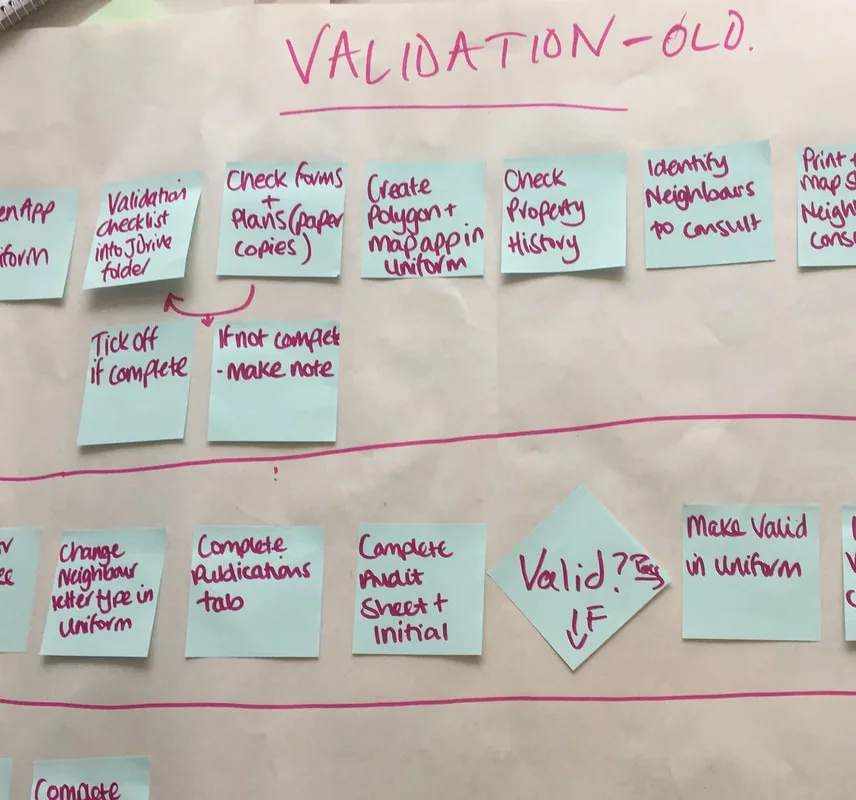 VALIDATION - OLD.
enApp
iform
Validation
checklist
into J Drive
folder
Check forms
+
Plans (paper
copies)
Create
Polygon +
map app in
uniform
Check
Property
History
Identify
Neighbours
to consult
Print +
map s
Neigh
cons
Tick off
if complete
If not complet
- Make note
Change
Neighbour
letter type in
uniform
Complete
Publications
tab
Complete
Audit
Sheet +
Initial
Valid? Pass
F
Make Valid
in uniform
Complete